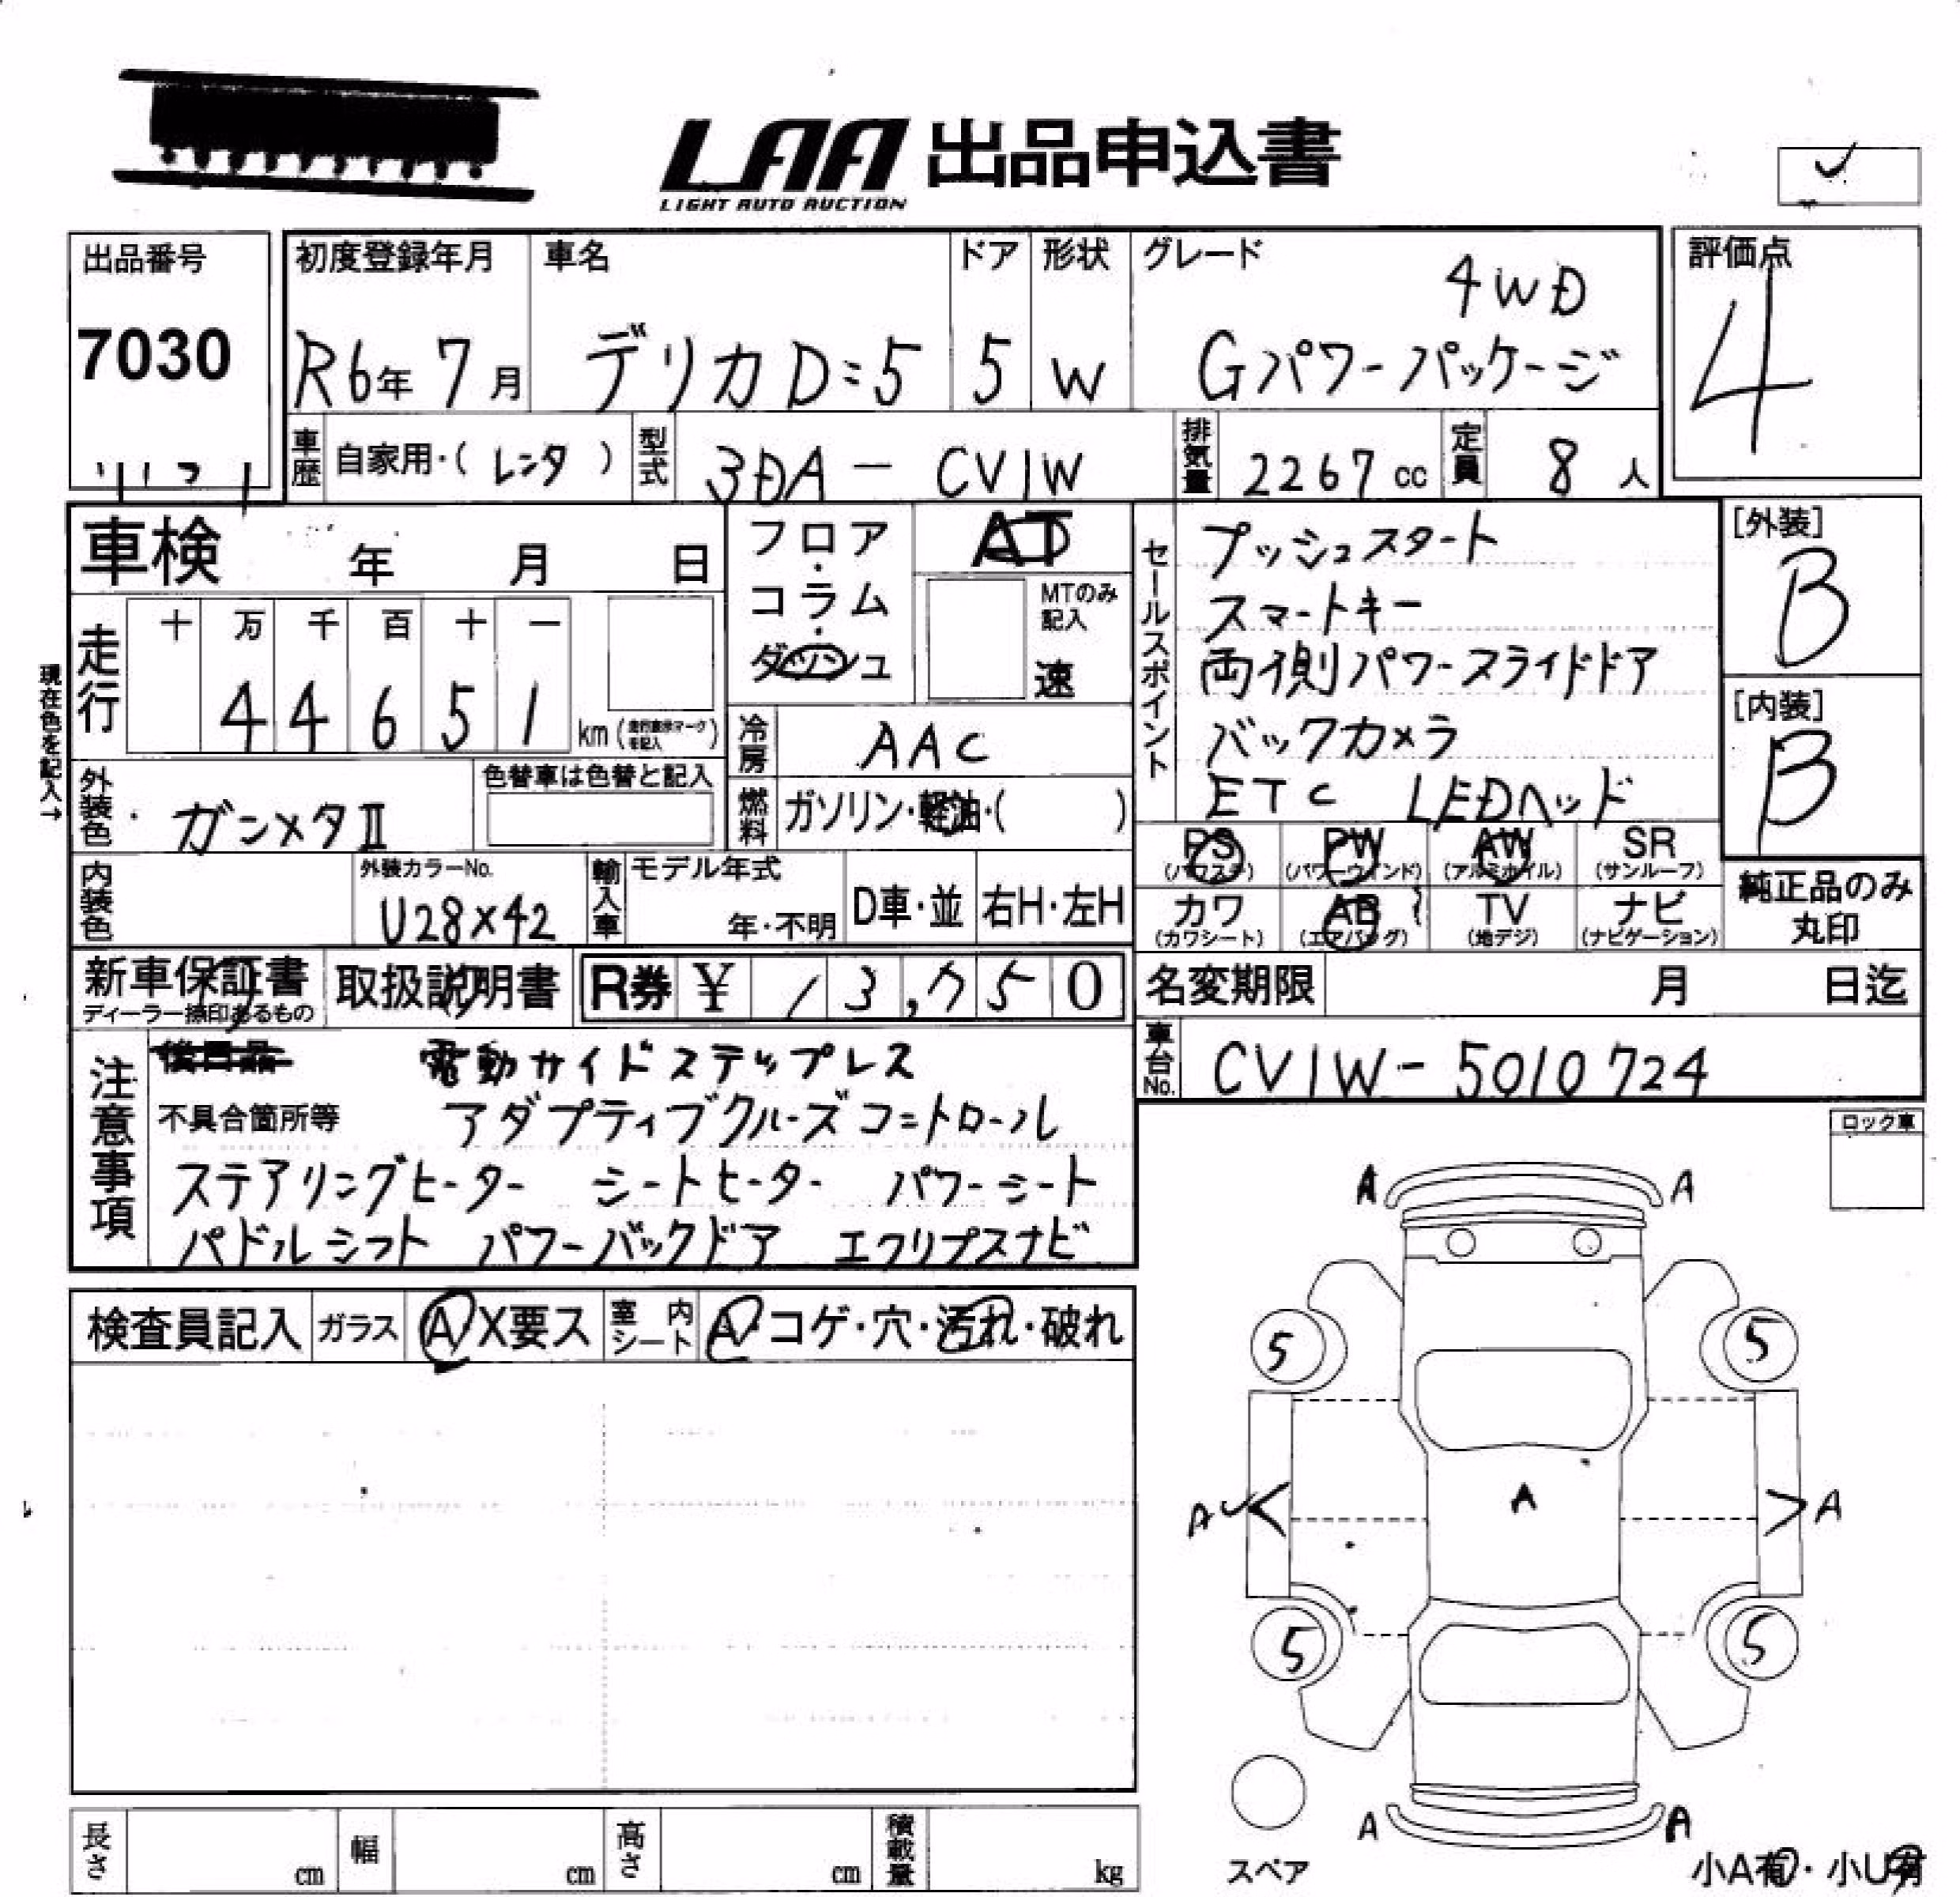 LAA 出品申込書
LIGHT AUTO AUCTION
出品番号
7030
初度登録年月
R6年 7月
車名
デリカD:5
ドア
5
形状
W
グレード
4WD
Gパワーパッケージ
評価点
4
車歴
自家用・( レンタ )
型式
3DA - CV1W
排気量
2267 cc
定員
8 人
車検 年 月 日
フロア・コラム・ダッシュ
AT
MTのみ記入
速
セールスポイント
プッシュスタート
スマートキー
両側パワースライドドア
バックカメラ
ETC LEDヘッド
[外装]
B
[内装]
B
現在色を記入→
走行
十 万 千 百 十 一
4 4 6 5 1 km
冷房
AAC
燃料
ガソリン・軽油・( )
外装色
ガンメタⅡ
色替車は色替と記入
内装色
外装カラーNo.
U28×42
輸入車
モデル年式
年・不明
D車・並
右H・左H
PS (パワステ)
PW (パワーウィンド)
AW (アルミホイル)
SR (サンルーフ)
カワ (カワシート)
AB (エアバッグ)
TV (地デジ)
ナビ (ナビゲーション)
純正品のみ
丸印
新車保証書
ディーラー捺印あるもの
取扱説明書
R券 ¥ 13,750
名変期限 月 日迄
車台No.
CV1W-5010724
注意事項
電動サイドステップレス
不具合箇所等
アダプティブクルーズコントロール
ステアリングヒーター シートヒーター パワーシート
パドルシフト パワーバックドア エクリプスナビ
ロック車
検査員記入
ガラス
A X要ス
室内シート
A・コゲ・穴・汚れ・破れ
A A
5 5
A A A
5 5
A A
スペア
小A有・小U有
長さ cm
幅 cm
高さ cm
積載量 kg